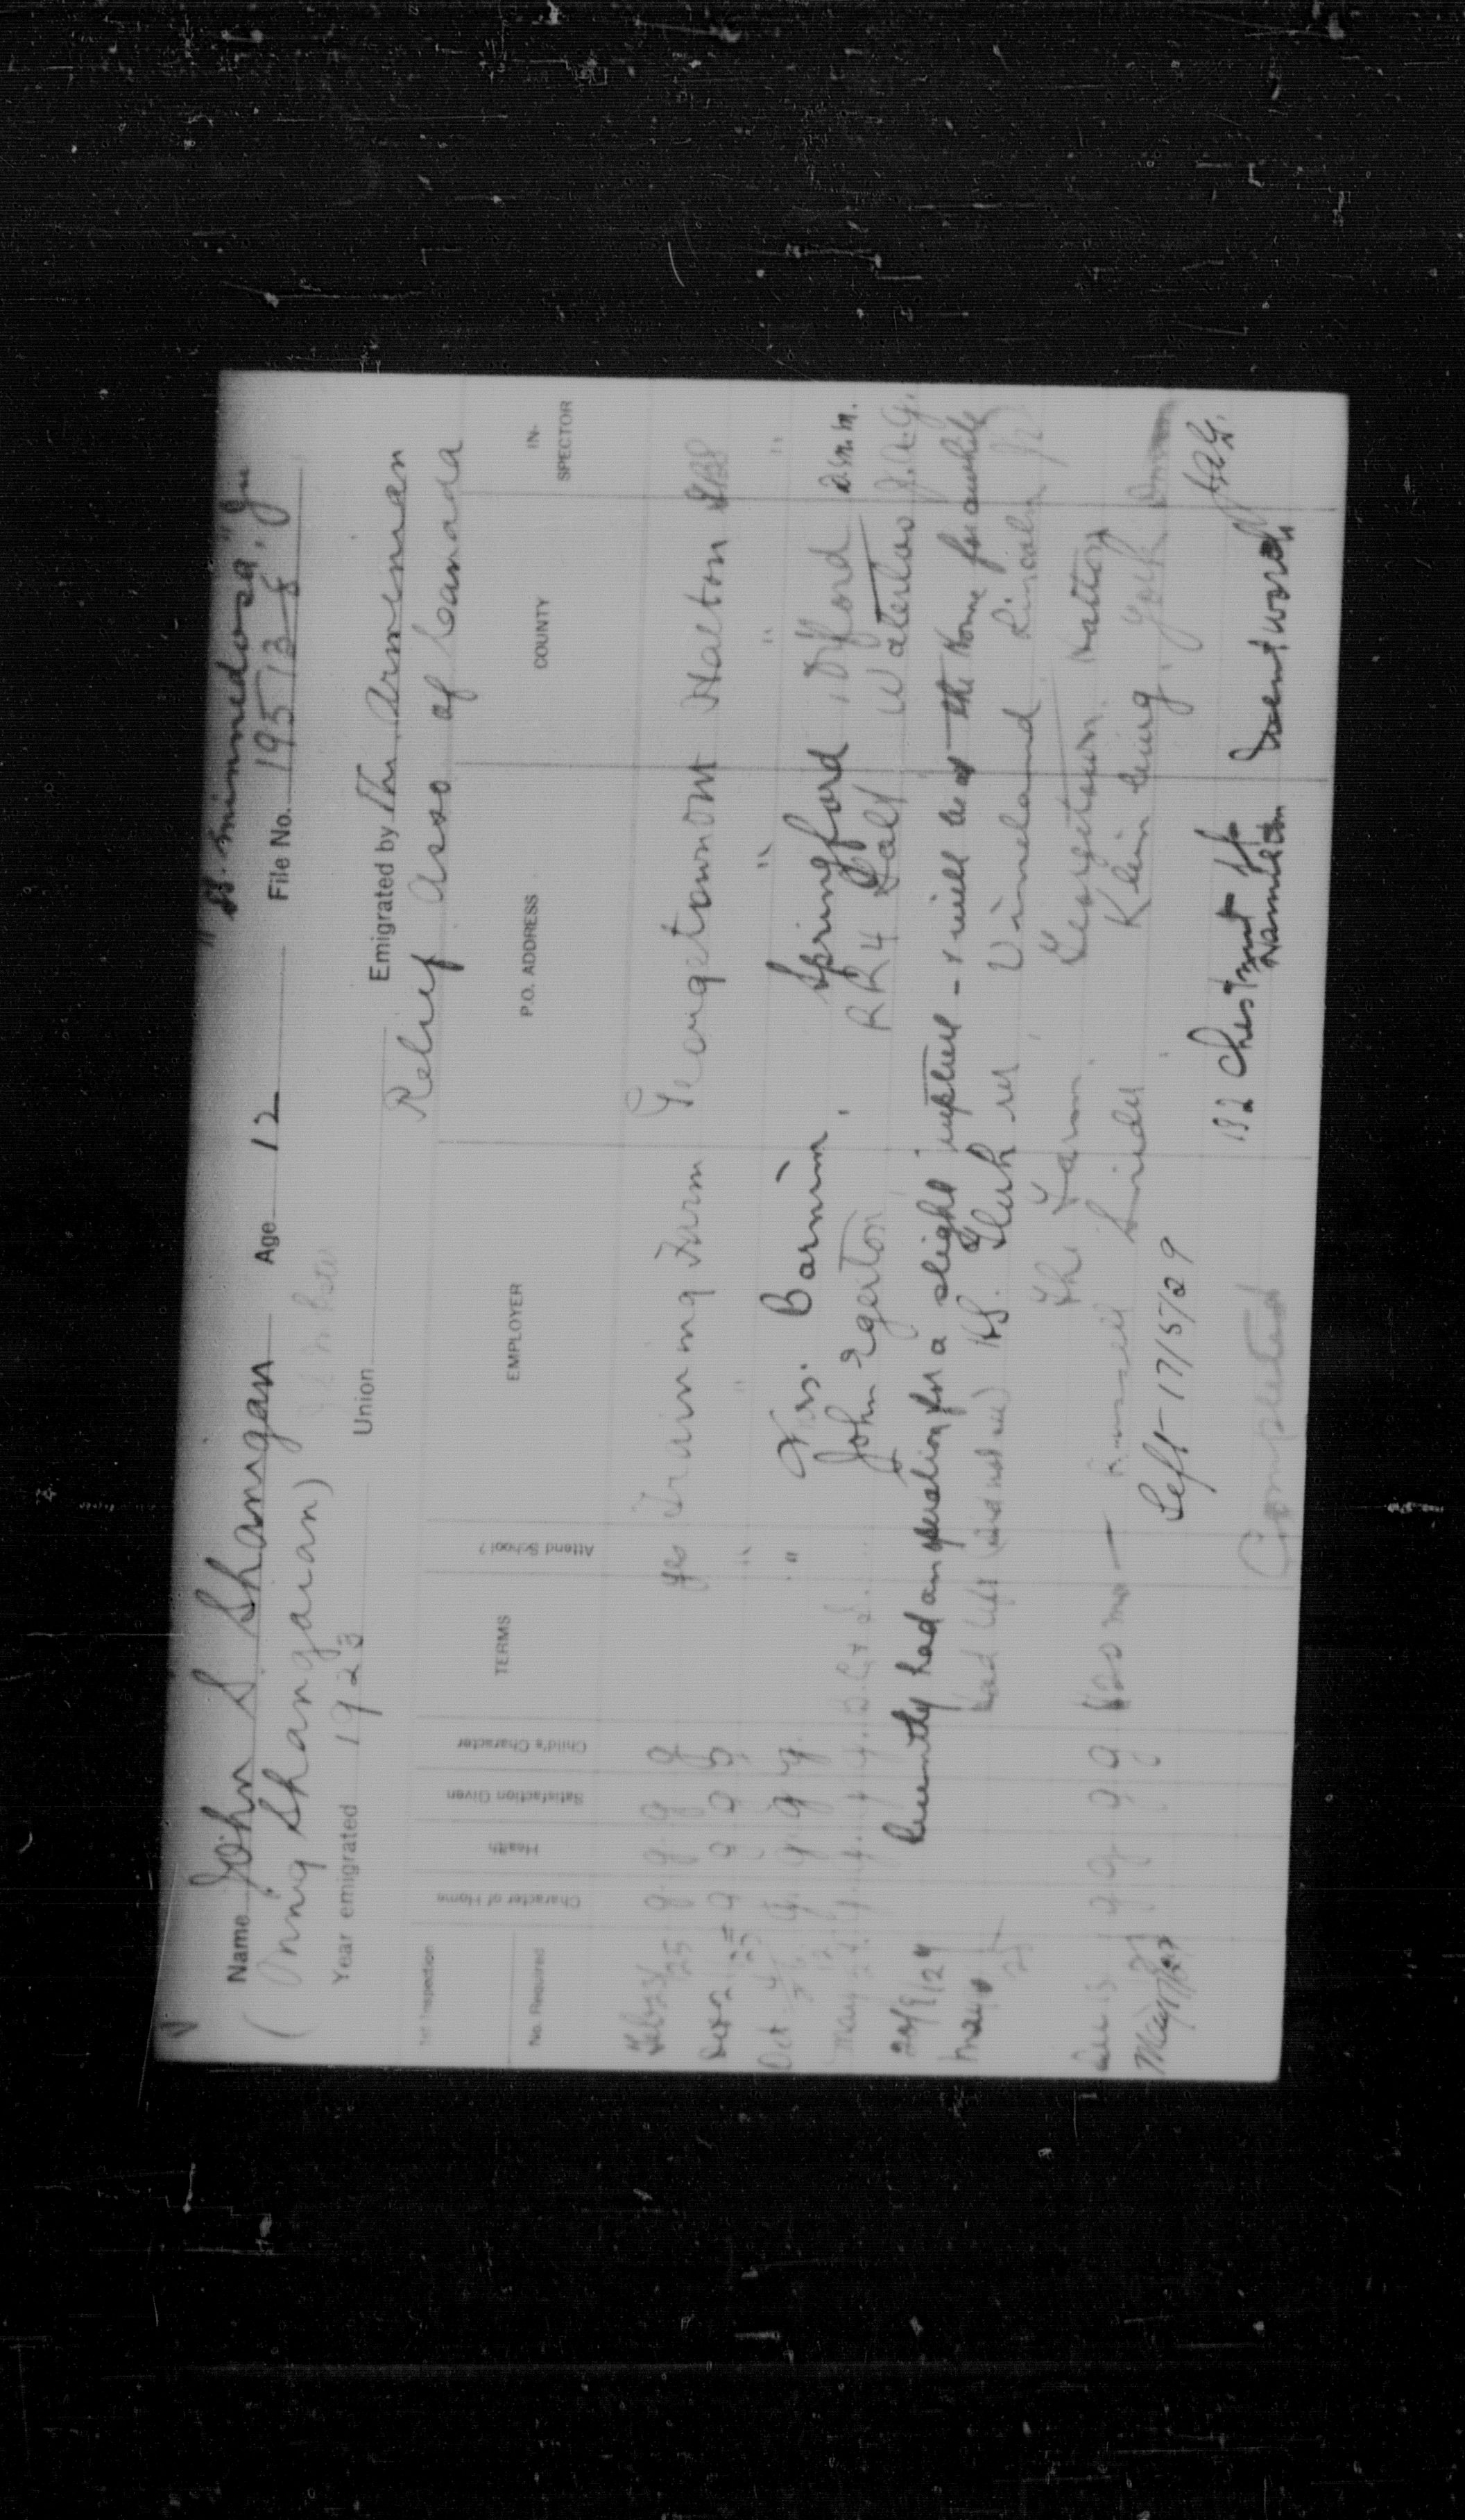 "SS. Minnedosa" Ju
Name John S. Shamgan Age 12 File No. 195138
(Onnig Shamgaian)
Year emigrated 1923 Union Emigrated by The Armenian
Relief Asso of Canada
1st Inspection
No. Required Character of Home Health Satisfaction Given Child's Character TERMS Attend School? EMPLOYER P.O. ADDRESS COUNTY IN-SPECTOR
Feb 24 25 g. g. g g yes Training Farm Georgetown Ont Halton
Dec 2 g g g g " " " " "
Oct g. g. g g. " Barnim Springford Oxford D.M.M.
May g. g. g g. B. C. & L. John Egerton RR 4 Galt Waterloo J.A.G.
24/9/24 Recently had an operation for a slight rupture - & will be at the Home for awhile
May 25 had left (did not see) Vineland Lincoln
The Farm. Georgetown. Halton
Dec 13 g g g g $20 mo — Russell Snider Kleinburg. York
May 17/29 Left 17/5/29 192 Chestnut St Hamilton Wentworth
Completed